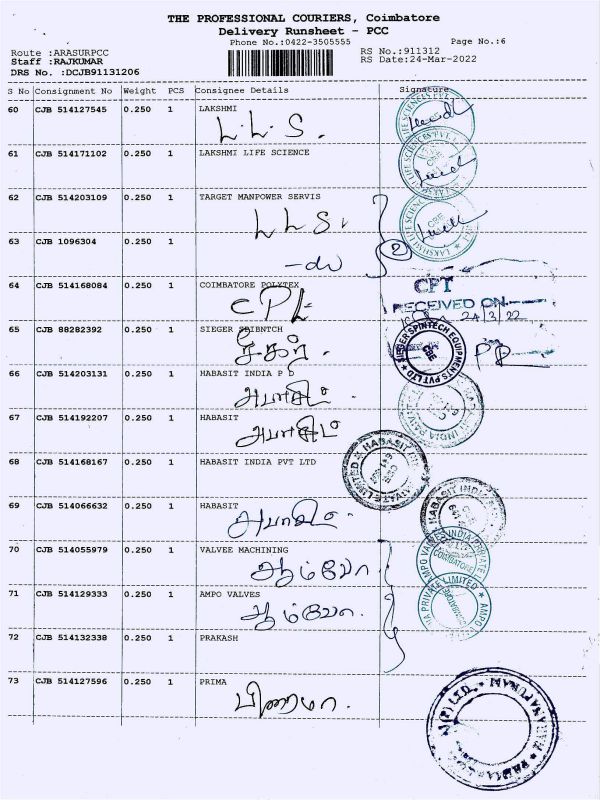 THE PROFESSIONAL COURIERS, Coimbatore
Delivery Runsheet - PCC
Phone No.:0422-3505555 Page No.:6
Route :ARASURPCC RS No.:911312
Staff :RAJKUMAR RS Date:24-Mar-2022
DRS No. :DCJB91131206
S No Consignment No Weight PCS Consignee Details Signature
60 CJB 514127545 0.250 1 LAKSHMI
L.L.S.
61 CJB 514171102 0.250 1 LAKSHMI LIFE SCIENCE
62 CJB 514203109 0.250 1 TARGET MANPOWER SERVIS
LLS
63 CJB 1096304 0.250 1
2
-do
64 CJB 514168084 0.250 1 COIMBATORE POLYTEX
CPT
RECEIVED ON
24/3/22
65 CJB 88282392 0.250 1 SIEGER SPIBNTCH
சீகர்.
SIEGER SPINTECH EQUIPMENTS PVT LTD CBE
66 CJB 514203131 0.250 1 HABASIT INDIA P
67 CJB 514192207 0.250 1 HABASIT
68 CJB 514168167 0.250 1 HABASIT INDIA PVT LTD
69 CJB 514066632 0.250 1 HABASIT
HABASIT INDIA
70 CJB 514055979 0.250 1 VALVEE MACHINING
ஆம்வோ
AMPO VALVES INDIA PRIVATE COIMBATORE
71 CJB 514129333 0.250 1 AMPO VALVES
ஆம்வோ.
72 CJB 514132338 0.250 1 PRAKASH
73 CJB 514127596 0.250 1 PRIMA
பிறைமா.